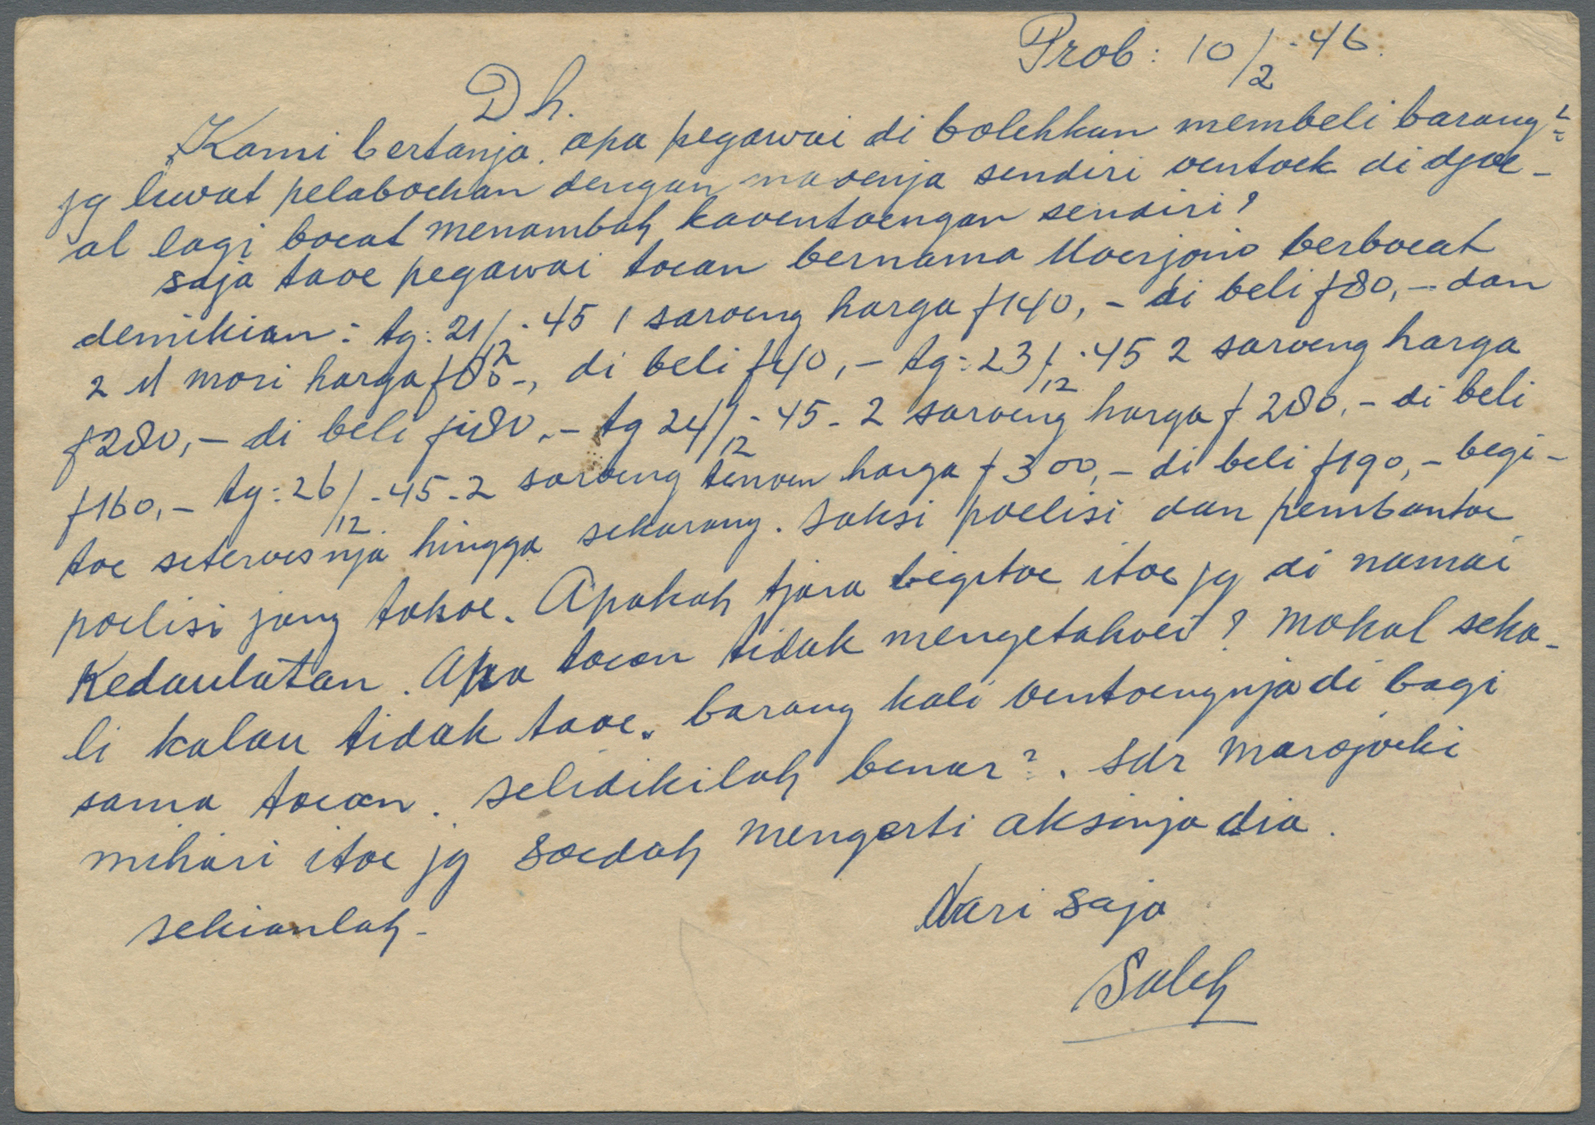 Prob: 10/2 -46.
Dh.
Kami bertanja. apa pegawai di bolehkan membeli barang2
jg liwat pelaboehan dengan maoenja sendiri oentoek di djoe-
al lagi boeat menambah kaoentoengan sendiri?
saja taoe pegawai toean bernama Moerjono berboeat
demikian: tg: 21/12 -45 1 saroeng harga f140,- di beli f80,- dan
2 M mori harga f80-, di beli f40,- tg: 23/12 -45 2 saroeng harga
f280,- di beli f180.- tg 24/12 -45- 2 saroeng harga f 280,- di beli
f160,- tg: 26/12 -45-2 saroeng tenoen harga f 300,- di beli f190,- begi-
toe seteroesnja hingga sekarang. saksi poelisi dan pembantoe
poelisi jang takoe. Apakah tjara begitoe itoe jg di namai
Kedaulatan. Apa toean tidak mengetahoei? mokal seka-
li kalau tidak taoe. barang kali oentoengnja di bagi
sama toean. selidikilah benar2. sdr
mihari itoe jg soedah mengerti aksinja dia.
sekianlah- dari saja
Saleh